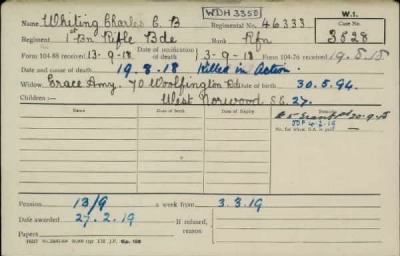 WDH 3350 W.I.
Name Whiting Charles C. B Regimental No. 46333 Case No.
Regiment 1st Bn Rifle Bde Rank Rfn 3528
Form 104-88 received 13-9-18 Date of notification of death 13-9-18 Form 104-76 received 19.5.15
Date and cause of death 19.8.18 Killed in Action.
Widow, Grace Amy. 70 Woolpington Rd Date of Birth 30.5.94.
Children:— West Norwood S.E. 27.
Name Date of Birth Date of Expiry
No. for which S.A. is paid
Pension 13/9 a week from 3.3.19
Date awarded 27.2.19 If refused, reason
Papers